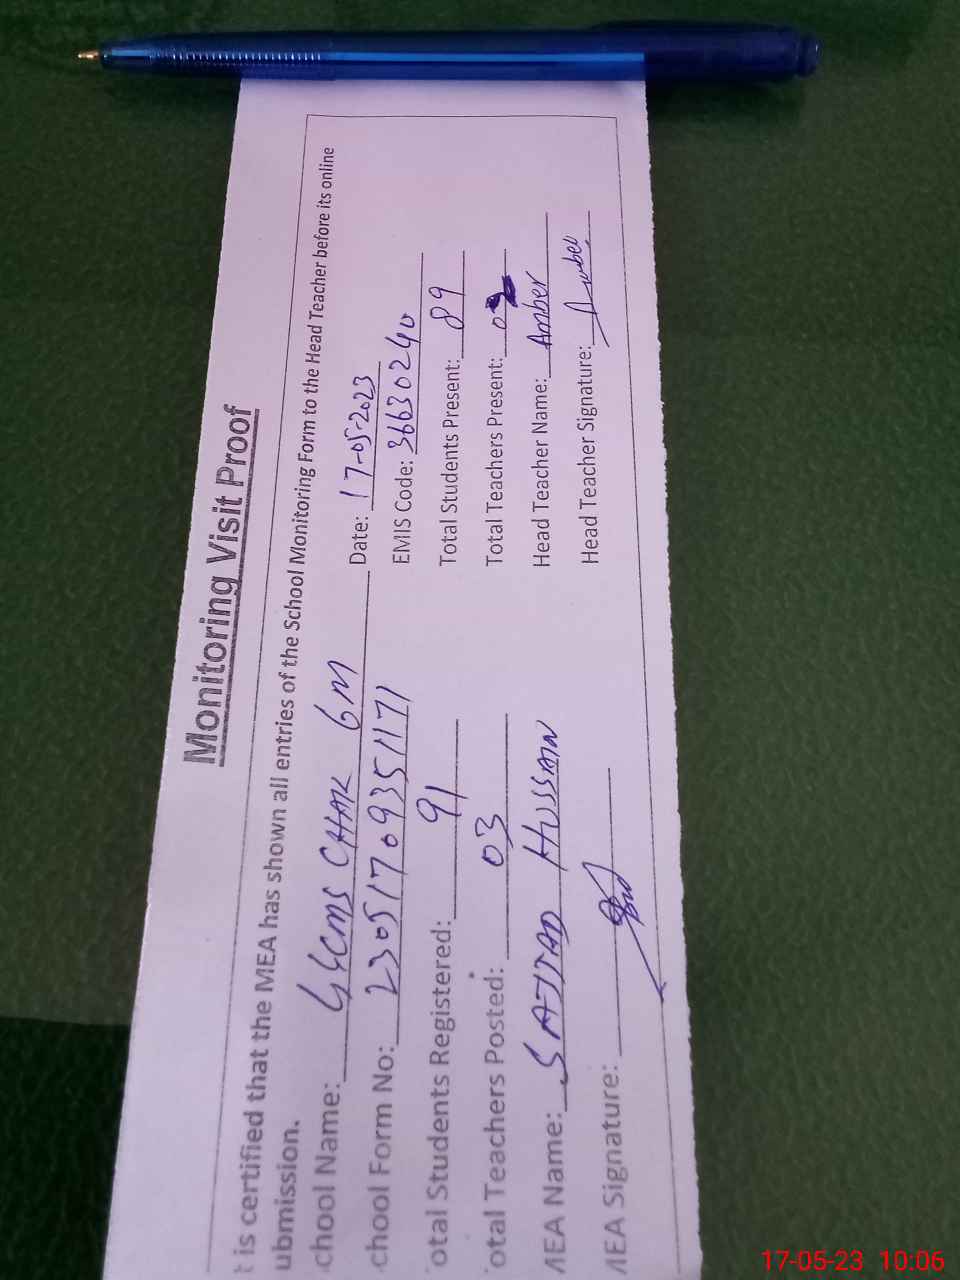 Monitoring Visit Proof
t is certified that the MEA has shown all entries of the School Monitoring Form to the Head Teacher before its online
ubmission.
chool Name: GGCMS CHAK 6M Date: 17-05-2023
chool Form No: 23051709351171 EMIS Code: 36630240
otal Students Registered: 91 Total Students Present: 89
otal Teachers Posted: 03 Total Teachers Present: 02
MEA Name: SAJJAD HUSSAIN Head Teacher Name: Amber
MEA Signature: Head Teacher Signature: Amber
17-05-23 10:06